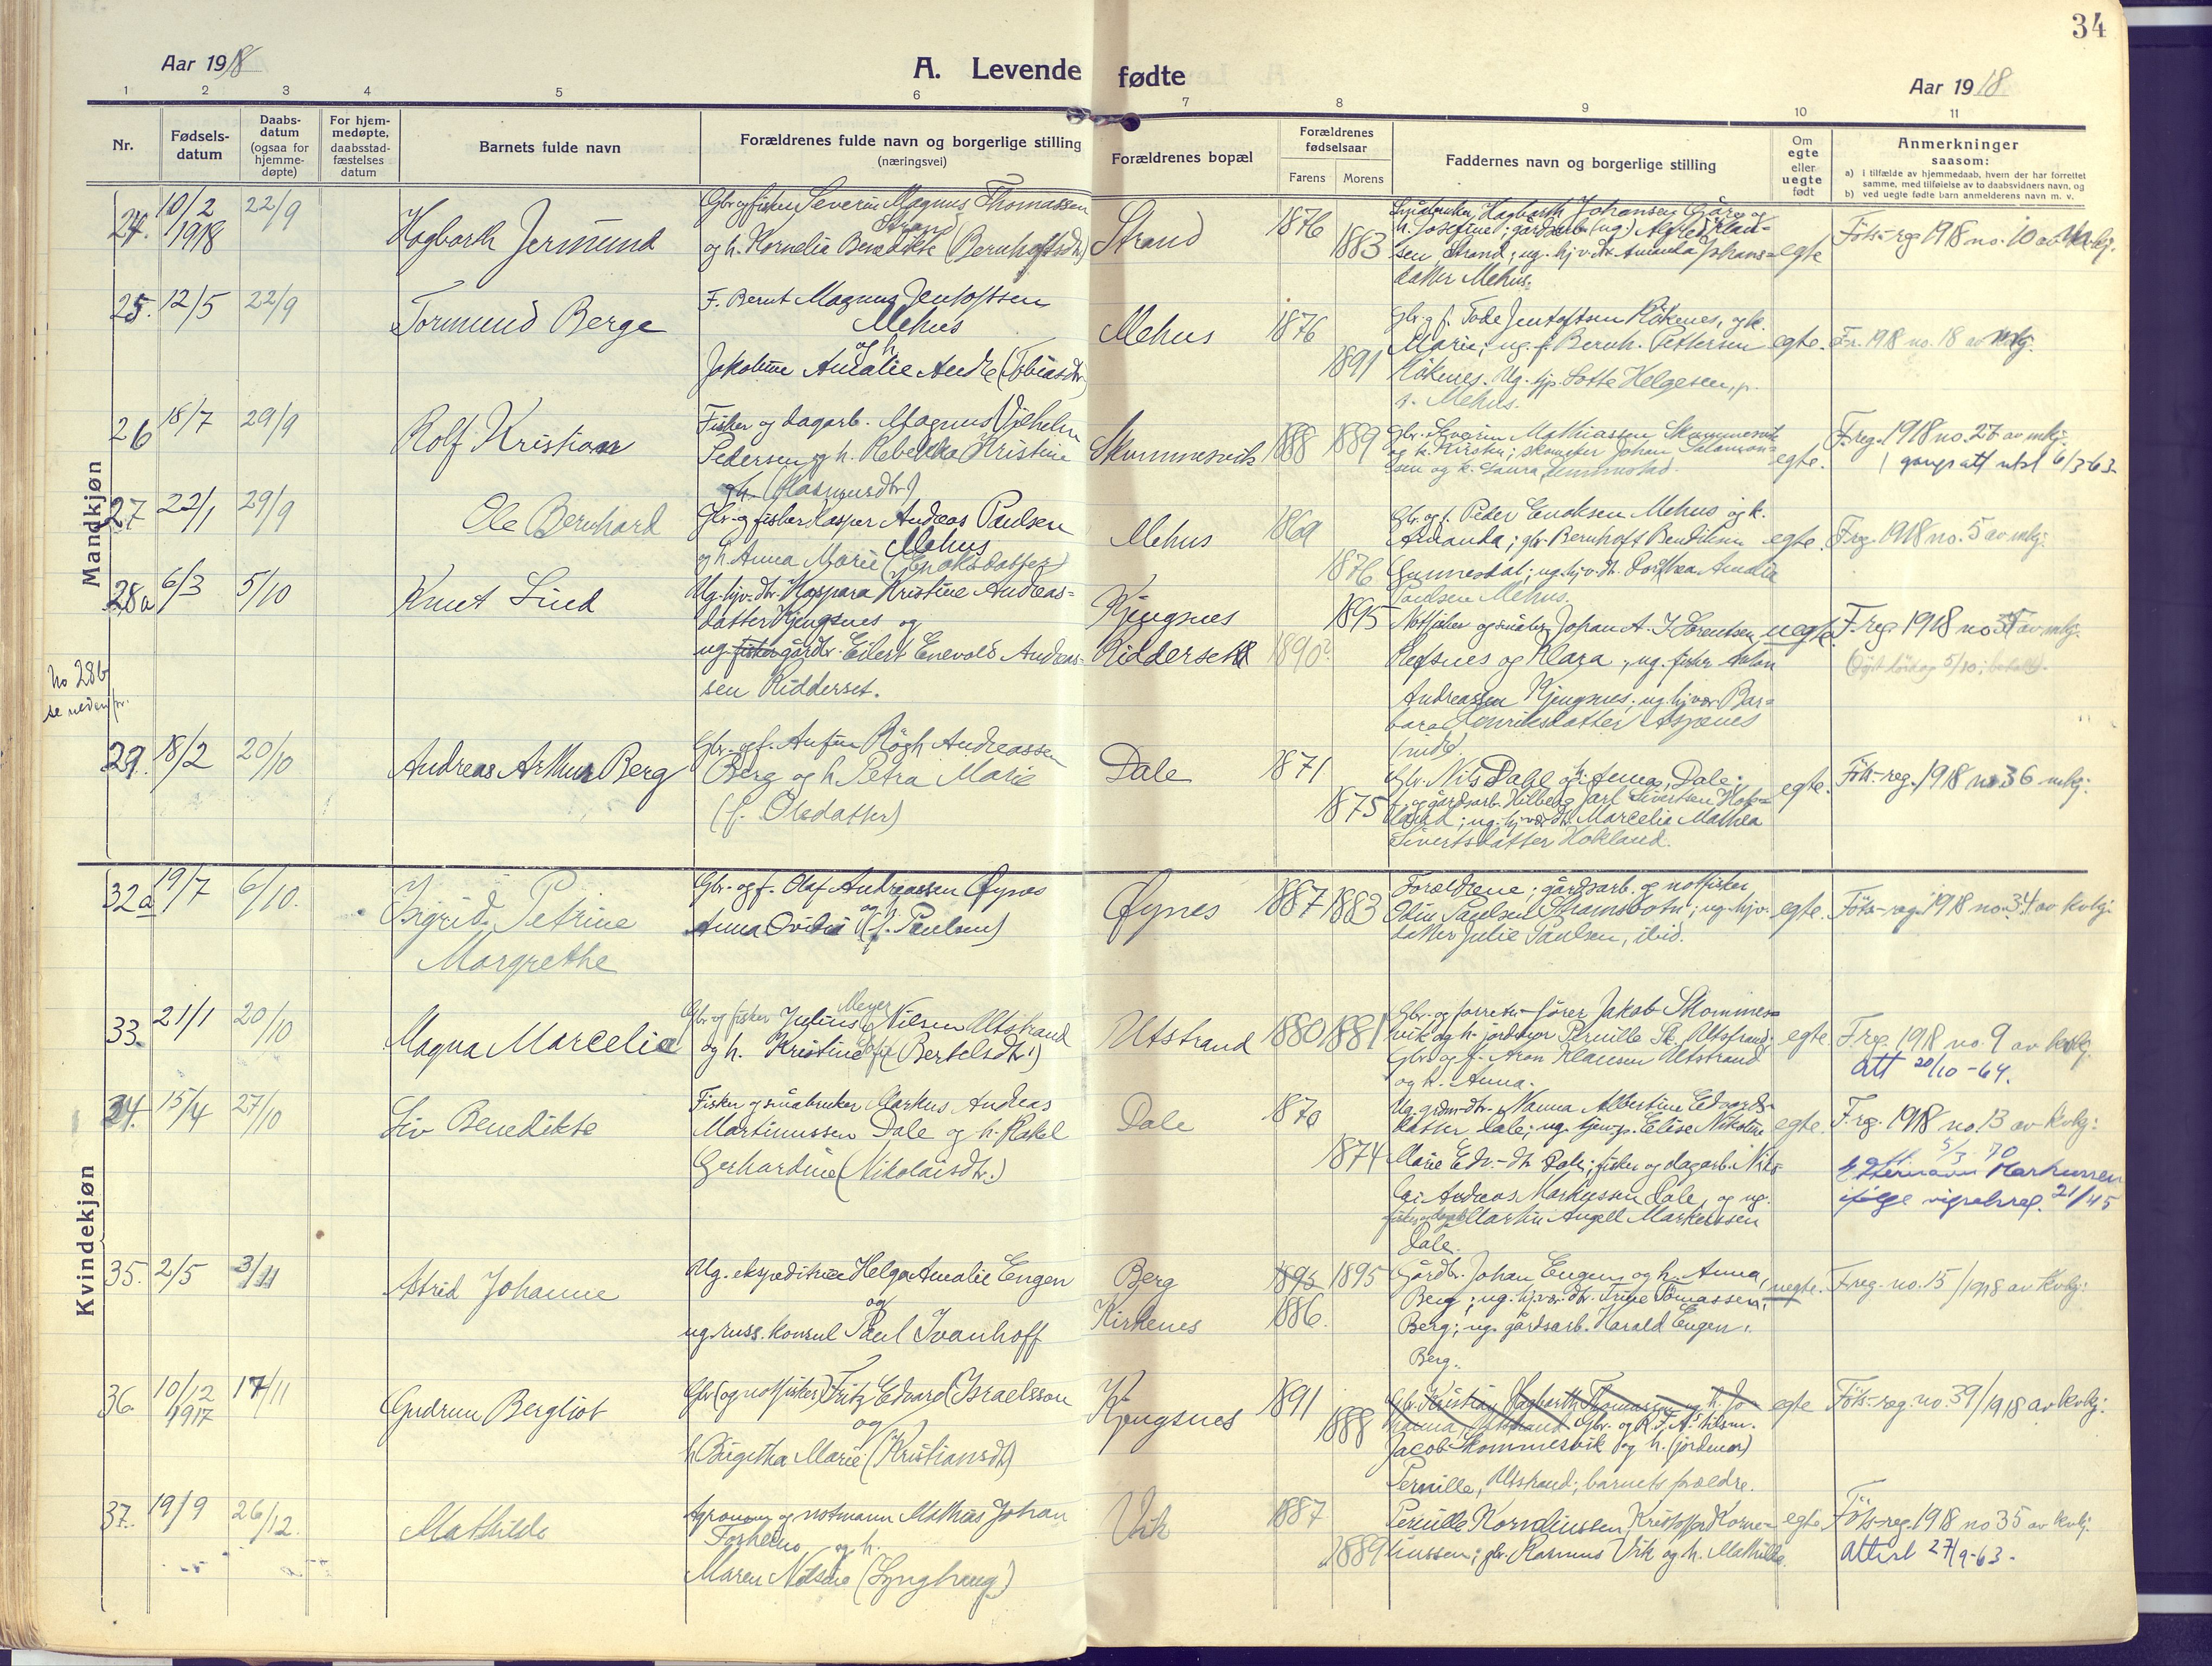 34
Aar 1918
A. Levende fødte
Aar 1918
1 2 3 4 5 6 7 8 9 10 11
Nr.
Fødsels-
datum
Daabs-
datum
(ogsaa for
hjemme-
døpte)
For hjem-
medøpte,
daabsstad-
fæstelses
datum
Barnets fulde navn
Forældrenes fulde navn og borgerlige stilling
(næringsvei)
Forældrenes bopæl
Forældrenes
fødselsaar
Farens Morens
Faddernes navn og borgerlige stilling
Om
egte
eller
uegte
født
Anmerkninger
saasom:
a) I tilfælde av hjemmedaab, hvem der har forrettet
samme, med tilføielse av to daabsvidners navn, og
b) ved uegte fødte barn anmelderens navn m. v.
Mandkjøn
24. 10/2 1918 22/9
Hagbarth Jermund
Gbr. og fisker Severin Magnus Thomassen
Strand
og h. Kornelia Benedikte (Bernhoftsdtr)
Strand
1876 1883
Hagbarth Johansen
h. Josefine; gårdsarb. (ug) Alfred Klau-
sen, Strand; ug. hjv. dtr Amanda Johans-
datter Mehus.
egte
Føds-reg 1918 no. 10 av mkj.
25. 12/5 22/9
Tormund Berge
F. Bernt Magnus Jentoftsen
Mehus
og h
Jakobine Amalie Andr (Tobiasdtr.)
Mehus
1876 1891
Gbr. og f. Tode Jentoftsen Røkenes, og k.
Marie; ug. f. Bernh. Pettersen
Røkenes. Ug. tjp. Lotte Helgesen, p.
t. Mehus.
egte.
Fr. 1918 no. 18 av mkj.
26 18/7 29/9
Rolf Kristian
Fisker og dagarb. Magnus Vilhelm
Pedersen og h. Rebekka Kristine
(Rasmusdtr)
Skummesvik
1888 1889
Gbr. Severin Mathiassen Skummesvik
og h. Kirsten; skomaker Johan Salamon-
sen og k. Laura
egte.
F.reg. 1918 no. 27 av mkj.
1 gangs att utst 6/3-63
27 22/1 29/9
Ole Bernhard
Gbr. og fisker Kasper Andreas Paulsen
Mehus
og h. Anna Marie (Enoksdatter)
Mehus
1869 1876
Gbr. og f. Peder Enoksen Mehus og k.
Amanda; gbr. Bernhoft Bendiksen
Gunnesdal; ug. hjv. dtr. Dorthea Amalia
Paulsen Mehus.
egte.
Freg. 1918 no. 5 av mkj.
28a 6/3 5/10
Knut Lind
Ug. hjv. dtr. Kaspara Kristine Andreas-
datter Kjengsnes og
ug. fisker gårdbr. Eilert Enevold Andreas-
sen Ridderset.
Kjengsnes
Ridderset
1890? 1895
Notfisker og småbr. Johan A. J. Sørensen
Refsnes og Klara, ug. fisker Anton
Andreassen Kjengsnes; ug. hjvær. Bar-
bara Henriksdatter Aspenes
(indre)
uegte
F.reg 1918 no 37 av mkj.
No 28b
se nedenfor.
29. 18/2 20/10
Andreas Arthur Berg
Gbr. og f. Anton Røgh Andreassen
Berg og h. Petra Marie
(f. Olsdatter)
Dale
1871 1875
Gbr. Nils Dahl og h. Anna, Dale;
gårdsarb. Hilberg Jarl Sivertsen Hok-
land; ug. hjvær. dtr. Marcelia Mathea
Sivertsdatter Hokland.
egte.
Føds-reg. 1918 no. 36 mkj.
Kvindekjøn
32a 19/7 6/10.
Sigrid Petrine
Margrethe
Gbr. og f. Olaf Andreassen Øynes
og h
Anna Ovidia (f. Paulsen)
Øynes
1887 1883
Forældrene; gårdsarb. og notfisker
Odin Paulsen Straumsbotn; ug. hjv.
datter Julie Paulsen, ibid.
egte.
Føds-reg. 1918 no. 34 av kvkj.
33. 21/1 20/10
Magna Marcelie
Gbr og fisker Julius Meyer Nilsen Utstrand
og h. Kristine Sofie (Bertelsdtr.)
Utstrand
1880 1881
Gbr. og forretn.fører Jakob Skommes-
vik og h. jordmor Pernille Sk. Utstrand;
Gbr. og f. Aron Klausen Utstrand
og k. Anna.
egte.
F.reg. 1918 no. 9 av kvkj.
Att 20/10-64.
34. 15/4 27/10
Liv Benedikte
Fisker og småbruker Markus Andreas
Martinussen Dale og h. Rakel
Gerhardine (Nikolaisdtr.)
Dale
1870 1874
Ug. grdm.dtr. Nanna Albertine Edvards-
datter Dale; ug. tjenp. Elise Nikoline
Marie Edv.-dtr Dale; fisker og dagarb. Niko-
lai Andreas Markussen Dale, og ug.
fisker og dagarb. Martin Angell Markussen
Dale.
egte.
F.reg. 1918 no. 13 av kvkj.
5/3 70
Etternavn Markussen
ifølge vigselsreg. 21/45
35. 2/5 3/11
Astrid Johanne
Ug. ekspeditrice Helga Amalie Engen
og
ug. russ. konsul Paul Ivanhoff
Berg
Kirkenes
1895 1895
1886.
Gårdbr. Johan Engen og h. Anna,
Berg; ug. hjvær. dtr. Trine Tomassen,
Berg; ug. gårdsarb. Harald Engen,
Berg.
uegte.
F.reg. no. 15/1918 av kvkj.
36. 10/12 1917 17/11
Gudrun Bergliot
Gbr (og notfisker) Fritz Edvard Israelsson
og
h. Birgitha Marie (Kristiansdtr)
Kjengsnes
1891 1888
Gbr. Kristian Hagbarth Thomassen og h. Jo-
hanna, Utstrand. Gbr. og R.T.A. tilsm.
Jacob Skommesvik og h. (jordmor)
Pernille, Utstrand; barnets forældre.
egte
Føds-reg. no. 39/1918 av kvkj.
37. 19/9 26/12.
Mathilde
Agronom og notmann Mathias Johan
Forhemo og h.
Maren Nilsine (Lynghaug)
Vik
1887 1889
Pernille Korneliussen, Kristoffer Korne-
liussen; gbr. Rasmus Vik og h. Mathilde.
egte
Føds-reg. 1918 no 35 av kvkj.
Attest 27/9-63.